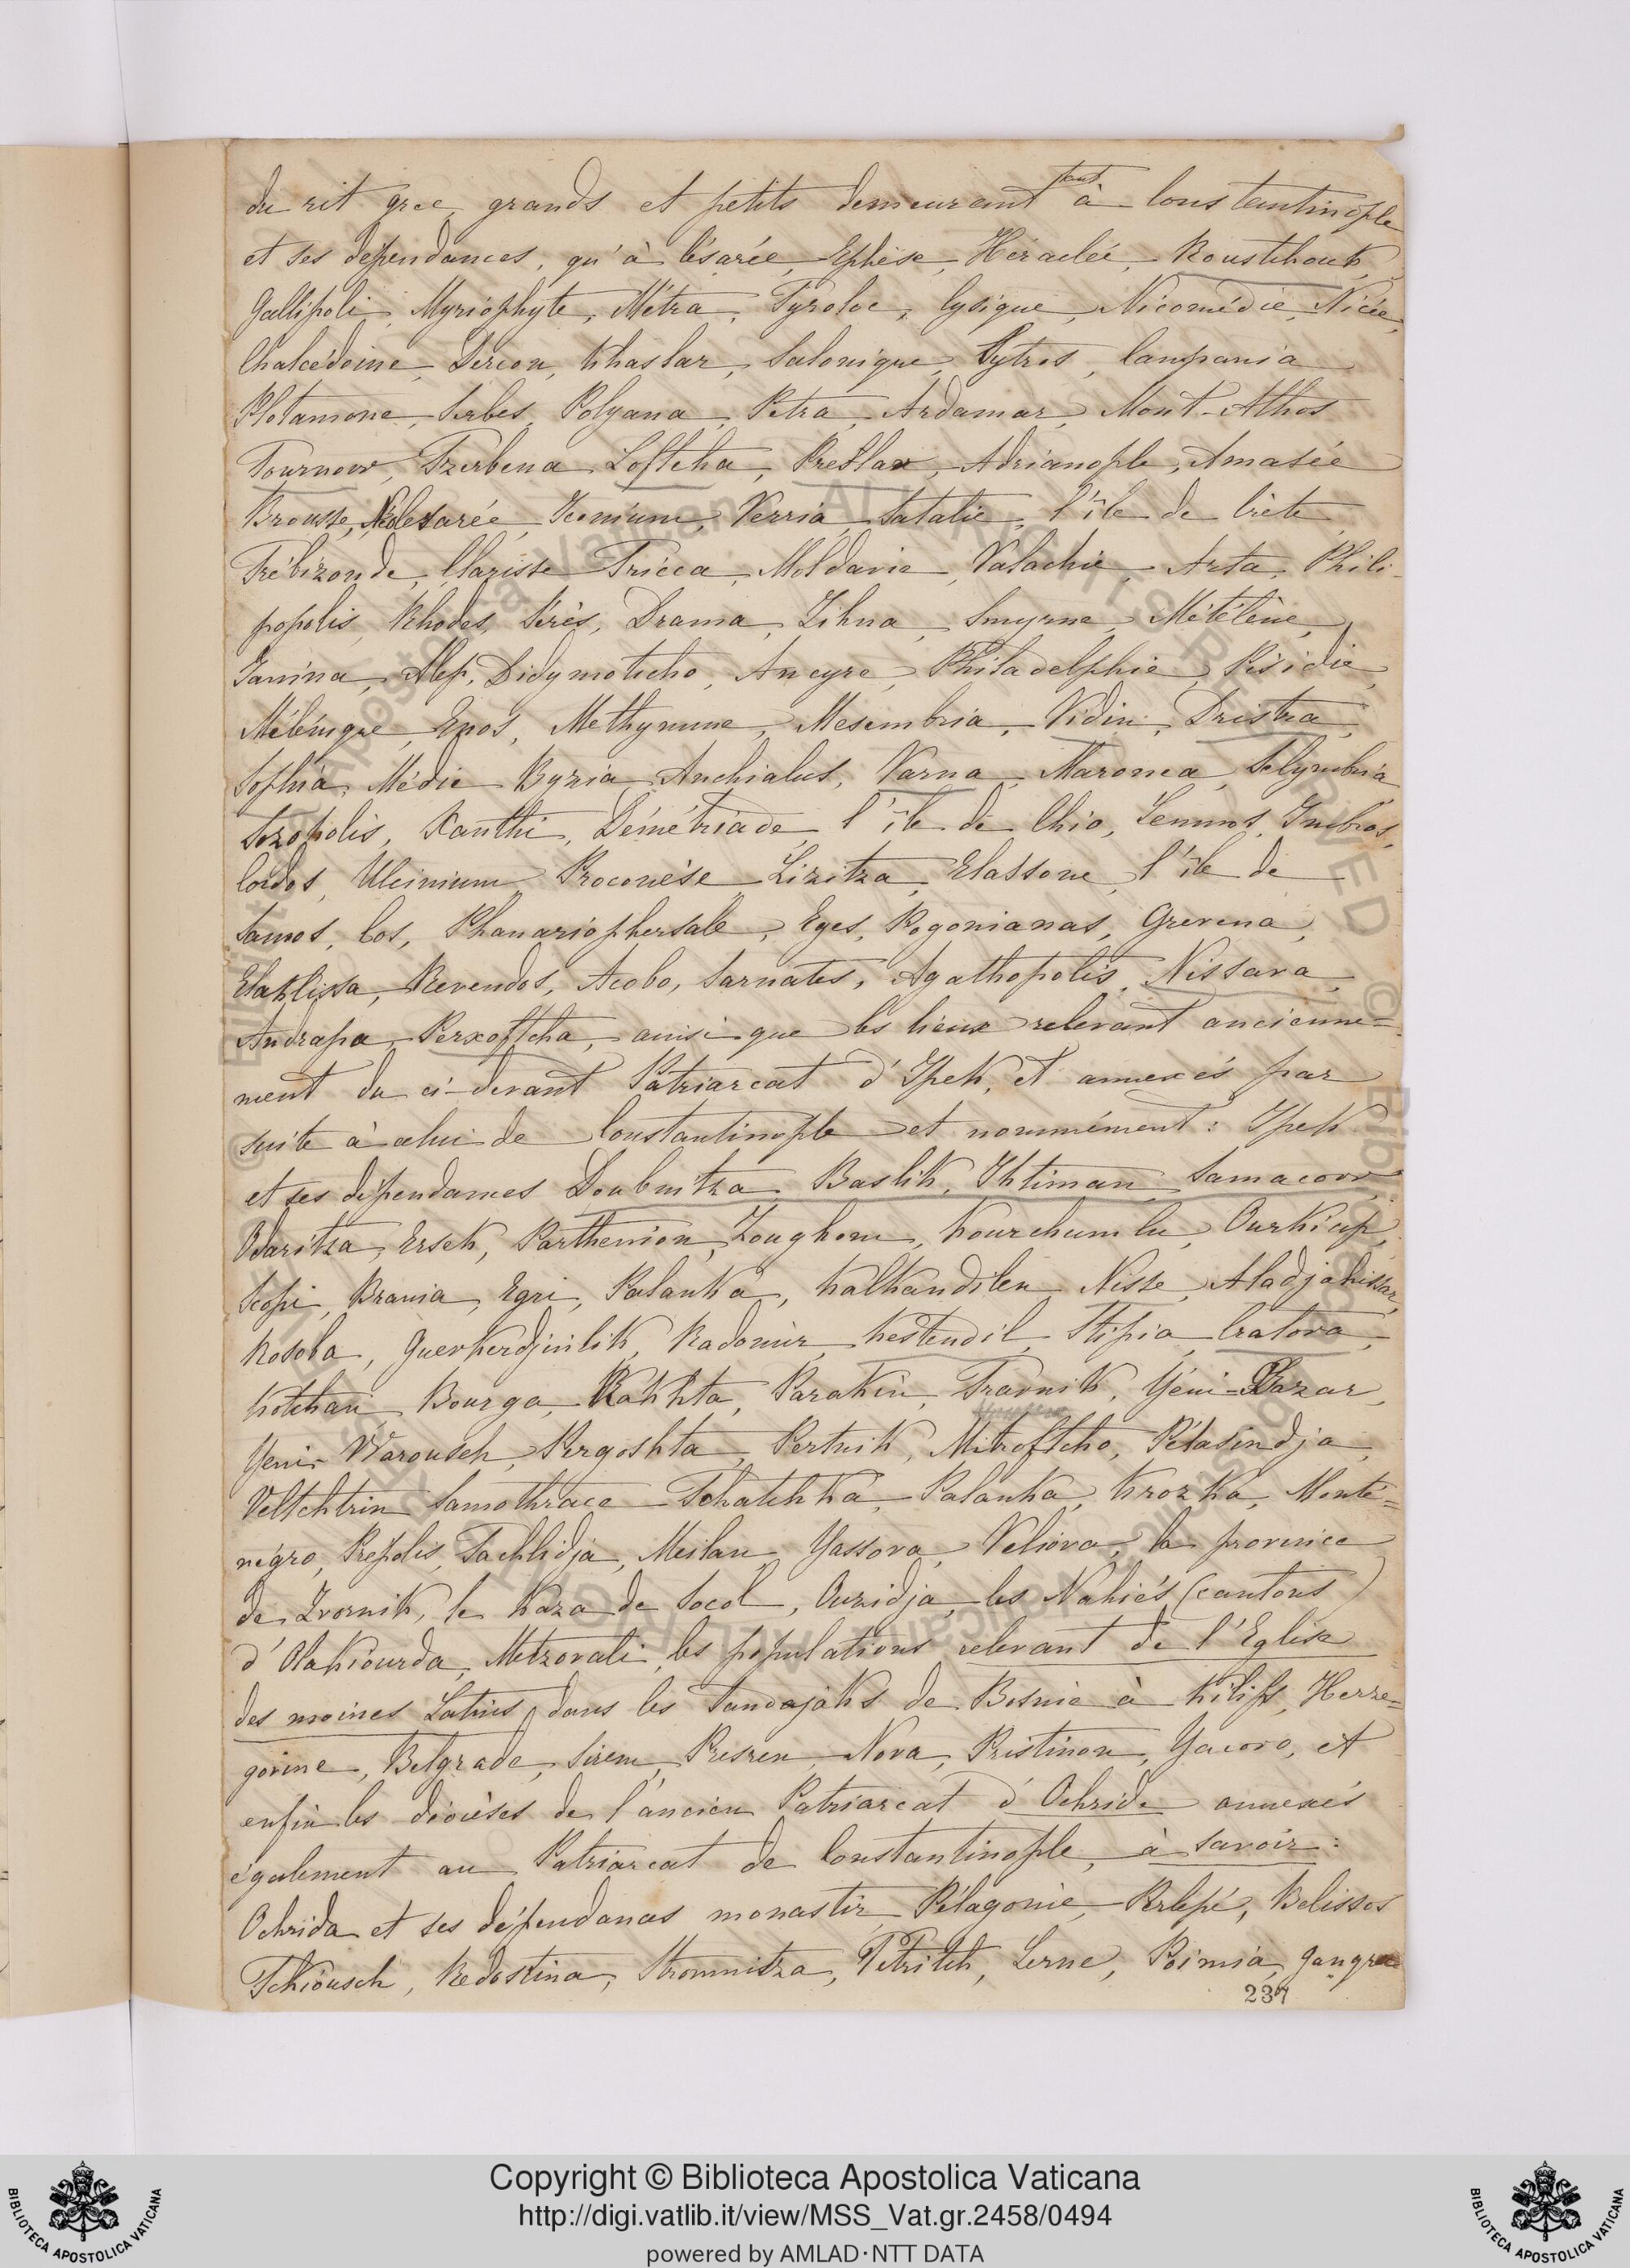 du rit grec grands et petits demeurant tant à Constantinople
et ses dépendances, qu'à Césarée, Ephèse, Héraclée, Roustchouk,
Gallipoli, Myriophyte, Métra, Tyroloe, Cysique, Nicomédie, Nicée,
Chalcédoine, Dercon, Khaslar, Salonique, Cytros, Campania
Platamone, Serbes, Polyana, Petra, Ardamar, Mont-Athos
Tournovo, Tzerbena, Loftcha, Preslav, Adrianople, Amasée
Brousse, Néocesarée, Iconium, Verria, Satalie, l'île de Crète
Trébizonde, Larisse Tricca, Moldavie, Valachie, Arta, Phili-
popolis, Rhodes, Sérès, Drama, Zihna, Smyrne, Métélène,
Janina, Alep, Didymoticho, Ancyre, Philadelphie, Pisidie,
Mélénique, Enos, Methymne, Mesembria, Vidin, Dristra,
Sophia, Médie Byzia, Anchialus, Varna, Maronea, Selymbria
Sozopolis, Xanthi, Démétriade, l'île de Chio, Lemnos, Imbros,
Cordos, Ulcinium, Proconèse Lizitza, Elassone, l'île de
Samos, Cos, Phanariophersale, Eyes, Pogonianas, Grevena,
Revendos, Acobo, Sarnates, Agathopolis, Nissava,
Andrapa, Perxoftcha, ainsi que les lieux relevant ancienne=
ment du ci-devant Patriarcat d'Ipek, et annexés par
suite à celui de Constantinople et nommément: Ipek
et ses dépendances Doubnitza, Baslik, Ihtiman, Samacovo,
Odaritza, Ersek, Parthenion, Zoughom, Kourchumlu, Ourkiup,
Scopi, Brania, Egri, Palanka, Kalkandilen, Nisse, Aladjahissar,
Kosoba, Guerkerdjinlik, Radomir, Kestendil, Stipia, Cratova,
Kotchani, Bourga, Rakhta, Parakin, Travnik, Yéni-Bazar,
Yeni-Warousch, Prgoshta, Pertnik, Mitroftcho, Pétasindja,
Veltchtrin Samothrace Tchatchka, Palanka, Krozka, Monté=
négro, Prépolis, Tachlidja, Meilan Yassova, Veliova, la province
de Zvornik, le Kaza de Socol, Ouzidja, les Nahiés (cantons)
d'Olakiourda, Metzovali, les populations relevant de l'Eglise
des moines Latins, dans les Sandajaks de Bosnie à Kilifs, Herze=
govine, Belgrade, Sirem, Presren, Nova, Pristinon, Yacovo, et
enfin les diocèses de l'ancien Patriarcat d'Ochrida annexés
également au Patriarcat de Constantinople, à savoir:
Ochrida et ses dépendances monastir, Pélagonie, Perlepé, Belissos
Tchiousch, Redostina, Stromnitza, Petritch, Lerne, Poimia, Gangra
237
Copyright © Biblioteca Apostolica Vaticana
http://digi.vatlib.it/view/MSS_Vat.gr.2458/0494
powered by AMLAD·NTT DATA
BIBLIOTECA APOSTOLICA VATICANA
BIBLIOTECA APOSTOLICA VATICANA